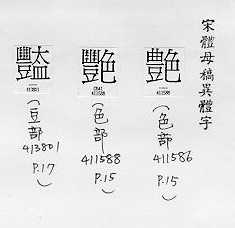 宋體母稿異體字
艶
411586
(色部
411586
P.15)
艷
411588
(色部
411588
P.15)
豓
413801
(豆部
413801
P.17)